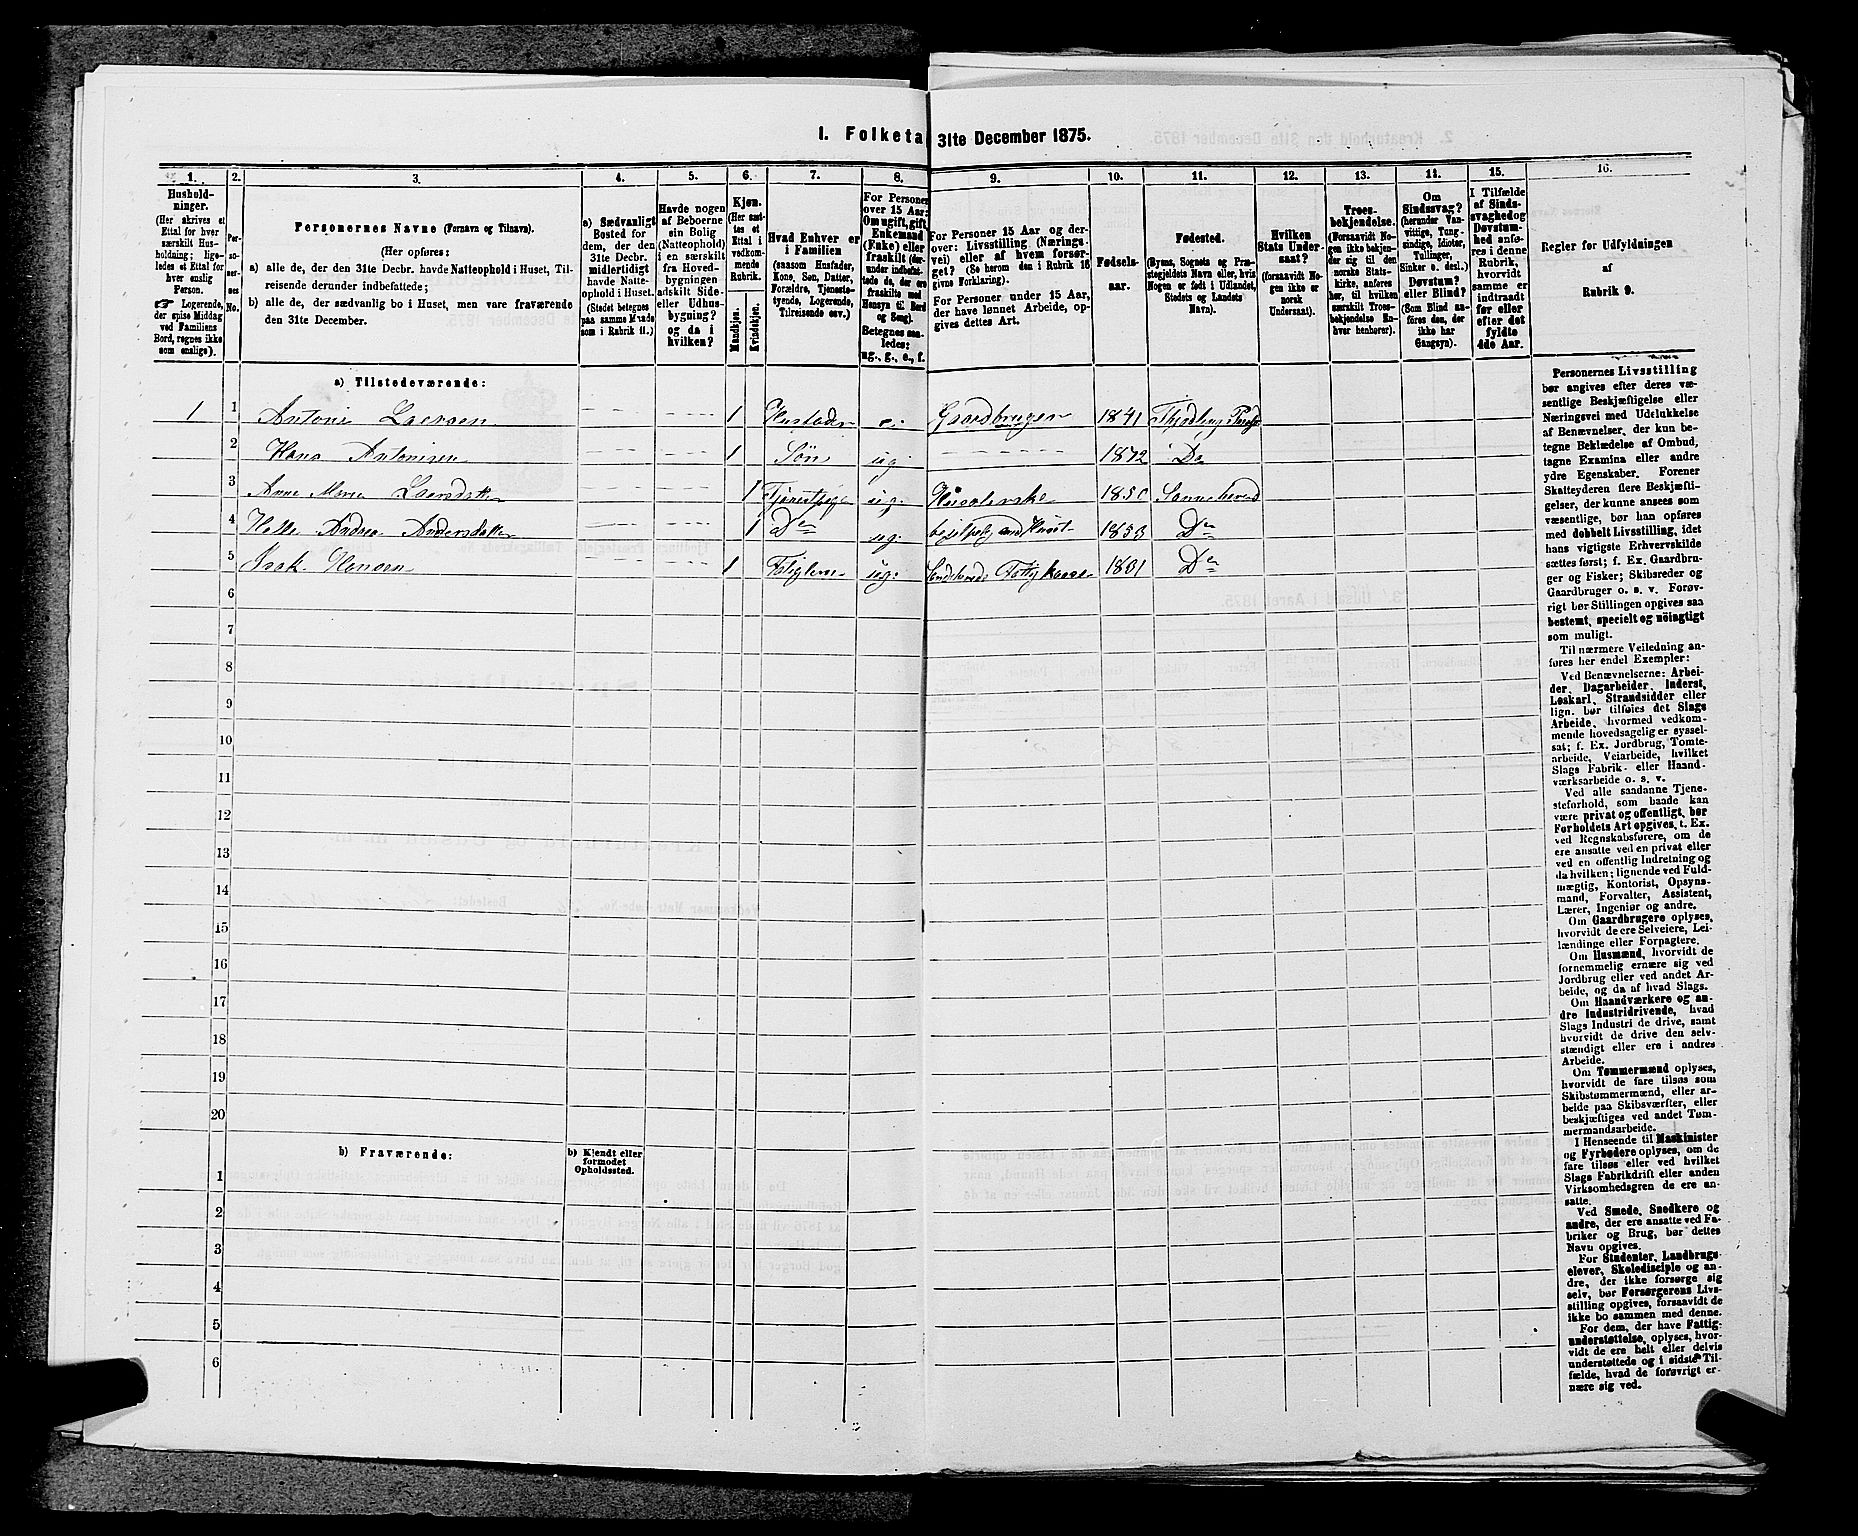 I. Folketa 31te December 1875.
1.
Hushold-
ninger.
(Her skrives et
Ettal for hver
særskilt Hus-
holdning; lige-
ledes et Ettal for
hver enslig
Person.
☞ Logerende,
der spise Middag
ved Familiens
Bord, regnes ikke
som enslige).
2.
Per-
so-
ner-
nes
No.
3.
Personernes Navne (Fornavn og Tilnavn).
(Her opføres:
a) alle de, der den 31te Decbr. havde Natteophold i Huset, Til-
reisende derunder indbefattede;
b) alle de, der sædvanlig bo i Huset, men vare fraværende
den 31te December.
4.
a) Sædvanligt
Bosted for
dem, der den
31te Decbr.
midlertidigt
havde Natte-
ophold i Huset.
(Stedet betegnes
paa samme Maade
som i Rubrik 11.)
5.
Havde nogen
af Beboerne
sin Bolig
(Natteophold)
i en særskilt
fra Hoved-
bygningen
adskilt Side-
eller Udhus-
bygning?
og da i
hvilken?
6.
Kjøn.
(Her sæt-
tes et
Ettal i
vedkom-
mende
Rubrik.
Mandkjøn.
Kvindekjøn.
7.
Hvad Enhver er
i Familien
(saasom Husfader,
Kone, Søn, Datter,
Forældre, Tjeneste-
tyende, Logerende,
Tilreisende osv.)
8.
For Personer
over 15 Aar:
Om ugift, gift,
Enkemand
(Enke) eller
fraskilt (der-
under indbefat-
tede de, der ere
fraskilte med
Hensyn til Bord
og Seng).
Betegnes saa-
ledes:
ug., g., e., f.
9.
For Personer 15 Aar og der-
over: Livsstilling (Nærings-
vei) eller af hvem forsør-
get? (Se herom den i Rubrik 16
givne Forklaring).
For Personer under 15 Aar,
der have lønnet Arbeide, op-
gives dettes Art.
10.
Fødsels-
aar.
11.
Fødested.
(Byens, Sognets og Præ-
stegjeldets Navn eller, hvis
Nogen er født i Udlandet,
Stedets og Landets
Navn).
12.
Hvilken
Stats Under-
saat?
(forsaavidt No-
gen ikke er
norsk
Undersaat).
13.
Troes-
bekjendelse.
(Forsaavidt No-
gen ikke bekjen-
der sig til den
norske Stats-
kirke, anføres
her, til hvilken
særskilt Troes-
bekjendelse En-
hver henhører).
14.
Om
Sindssvag?
(herunder Van-
vittige, Tung-
sindige, Idioter,
Tullinger,
Sinker o. desl.)
Døvstum?
eller Blind?
(Som Blind an-
føres den, der
ikke har
Gangsyn).
15.
I Tilfælde
af Sinds-
svaghed og
Døvstum-
hed anfø-
res i denne
Rubrik,
hvorvidt
samme er
indtraadt
før eller
efter det
fyldte
4de Aar.
16.
Regler for Udfyldningen
af
Rubrik 9.
a) Tilstedeværende:
1 1 Antoni Larsen 1 e. Gaardbruger 1841
2 Hans Antonisen 1 Søn ug. 1872 Do
3 Anne Marie Larsdatter 1 Tjenestpige ug. 1850
4 Helle Andrea Andersdatter 1 Do ug. 1853 Do
5 Isak Hansen 1 ug. 1801 Do
6
7
8
9
10
11
12
13
14
15
16
17
18
19
20
b) Fraværende:
b) Kjendt eller
formodet
Opholdssted.
1
2
3
4
5
6
Personernes Livsstilling
bør angives efter deres væ-
sentlige Beskjæftigelse eller
Næringsvei med Udelukkelse
af Benævnelser, der kun be-
tegne Beklædelse af Ombud,
tagne Examina eller andre
ydre Egenskaber. Forener
Skatteyderen flere Beskjæfti-
gelser, der kunne ansees som
væsentlige, bør han opføres
med dobbelt Livsstilling, idet
hans vigtigste Erhvervskilde
sættes først; f. Ex. Gaardbru-
ger og Fisker; Skibsreder og
Gaardbruger o. s. v. Forøv-
rigt bør Stillingen opgives saa
bestemt, specielt og nöiagtigt
som muligt.
Til nærmere Veiledning an-
føres her endel Exempler:
Ved Benævnelserne: Arbei-
der, Dagarbeider, Inderst,
Løskarl, Strandsidder eller
lign. bør tilføies det Slags
Arbeide, hvormed vedkom-
mende hovedsagelig er syssel-
sat; f. Ex. Jordbrug, Tomte-
arbeide, Veiarbeide, hvilket
Slags Fabrik- eller Haand-
værksarbeide o. s. v.
Ved alle saadanne Tjene-
steforhold, som baade kan
være privat og offentligt, bør
Forholdets Art opgives, t. Ex.
ved Regnskabsførere, om de
ere ansatte ved en privat eller
ved en offentlig Indretning og
da hvilken; lignende ved Fuld-
mægtig, Kontorist, Opsyns-
mand, Forvalter, Assistent,
Lærer, Ingeniør og andre.
Om Gaardbrugere oplyses,
hvorvidt de ere Selveiere, Lei-
lændinge eller Forpagtere.
Om Husmænd, hvorvidt de
fornemmelig ernære sig ved
Jordbrug eller ved andet Ar-
beide, og da af hvad Slags.
Om Haandværkere og an-
dre Industridrivende, hvad
Slags Industri de drive, samt
hvorvidt de drive den selv-
stændigt eller ere i andres
Arbeide.
Om Tømmermænd oplyses,
hvorvidt de fare tilsøs som
Skibstømmermænd, eller ar-
beide paa Skibsværfter, eller
beskjæftiges ved andet Tøm-
mermandsarbeide.
I Henseende til Maskinister
og Fyrbødere oplyses, om de
fare tilsøs eller ved hvilket
Slags Fabrikdrift eller anden
Virksomhedsgren de ere an-
satte.
Ved Smede, Snedkere og
andre, der ere ansatte ved Fa-
briker og Brug, bør dettes
Navn opgives.
For Studenter, Landbrugs-
elever, Skoledisciple og an-
dre, der ikke forsørge sig
selv, bør Forsørgerens Livs-
stilling opgives, forsaavidt de
ikke bo sammen med denne.
For dem, der have Fattig-
understøttelse, oplyses, hvor-
vidt de ere helt eller delvis
understøttede og i sidste Til-
fælde, hvad de forøvrigt er-
nære sig ved.